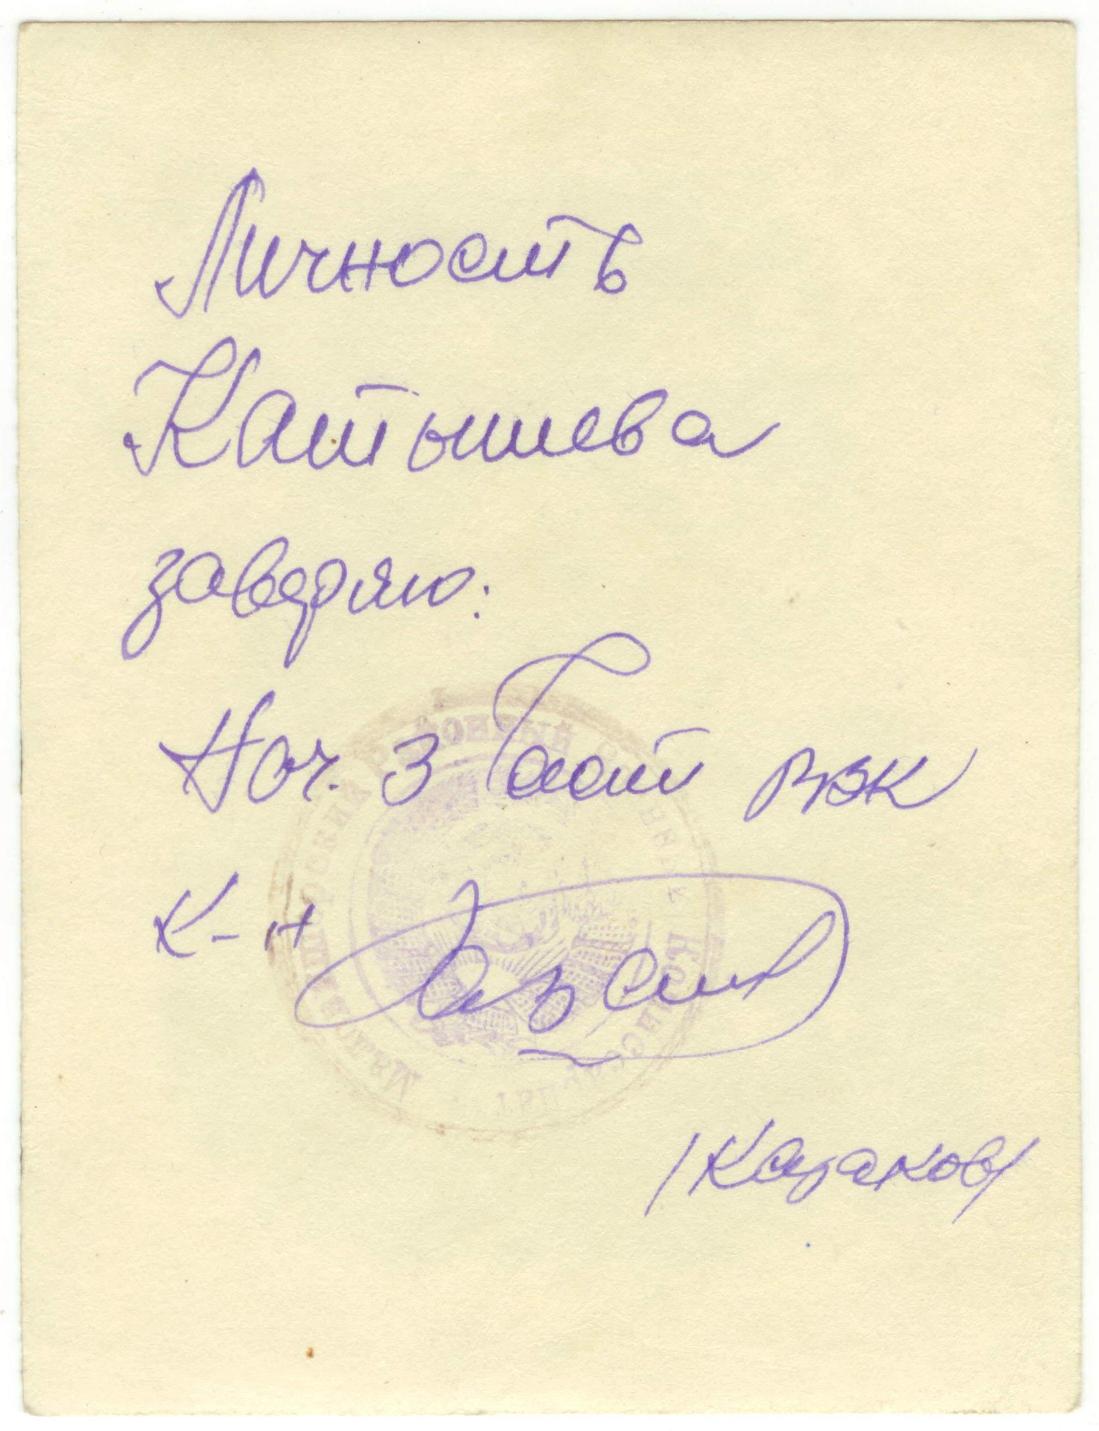 Личность
Катышева
заверяю:
Нач. 3 части РВК
К-н
/Казаков/